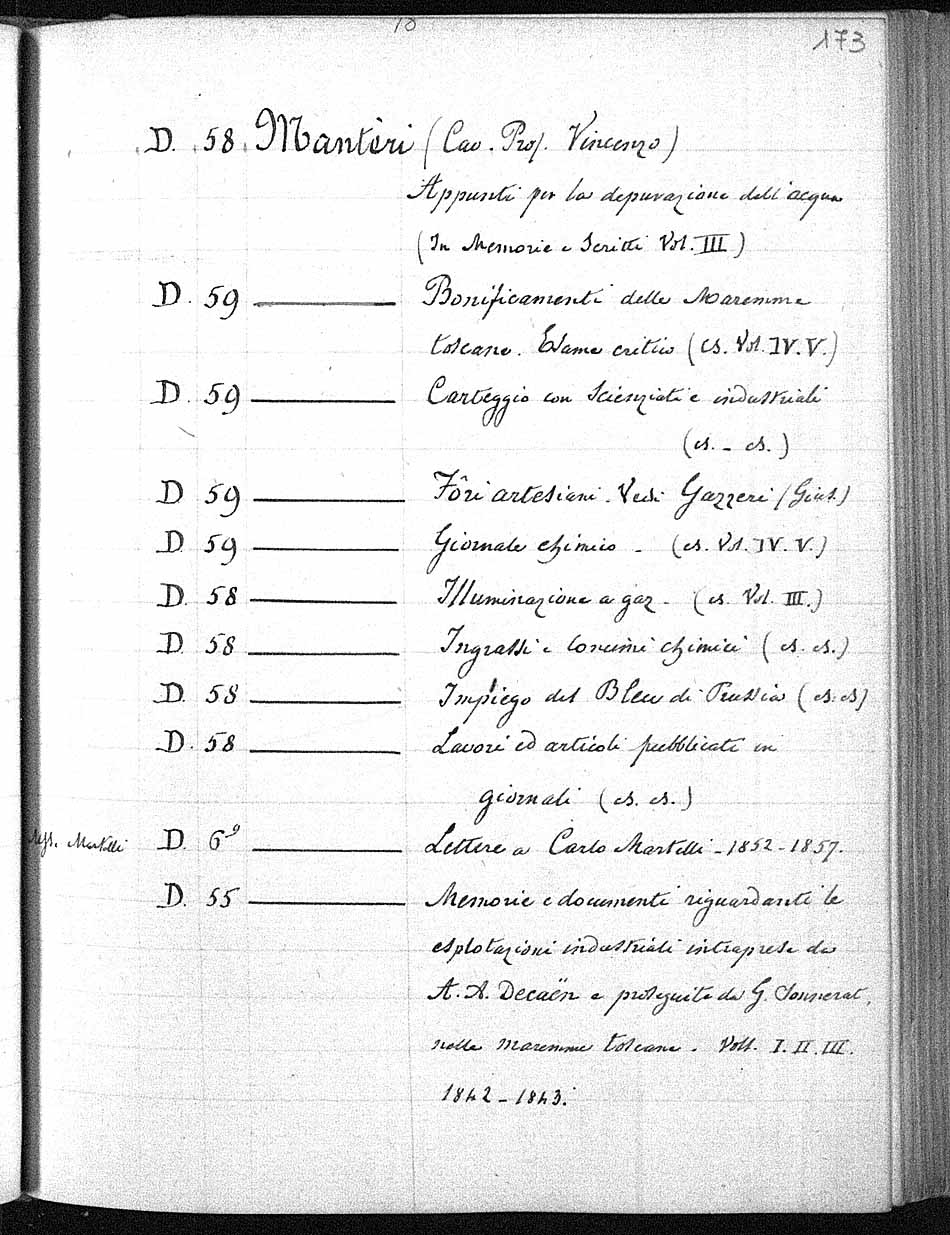 10
173
D. 58. Mantèri (Cav. Prof. Vincenzo)
Appunti per la depurazione dell'acqua
(In Memorie e Scritti Vol. III)
D. 59 Bonificamenti delle Maremme
toscane. Esame critico (cs. Vol. IV. V.)
D. 59 Carteggio con Scienziati e industriali
(cs. - cs.)
D 59 Fôri artesiani. Vedi Gazzeri (Gius.)
D. 59 Giornale chimico - (cs. Vol. IV. V.)
D. 58 Illuminazione a gaz - (cs. Vol. III.)
D. 58 Ingrassi e concimi chimici (cs. cs.)
D. 58 Impiego del Bleu di Prussia (cs. cs)
D. 58 Lavori ed articoli pubblicati in
giornali (cs. cs.)
Martelli D. 6⁹ Lettere a Carlo Martelli - 1852 - 1857.
D. 55 Memorie e documenti riguardanti le
esplotazioni industriali intraprese da
A. A. Decaën e proseguite da G. Sonnerat,
nelle maremme toscane. Voll. I. II. III.
1842 - 1843.